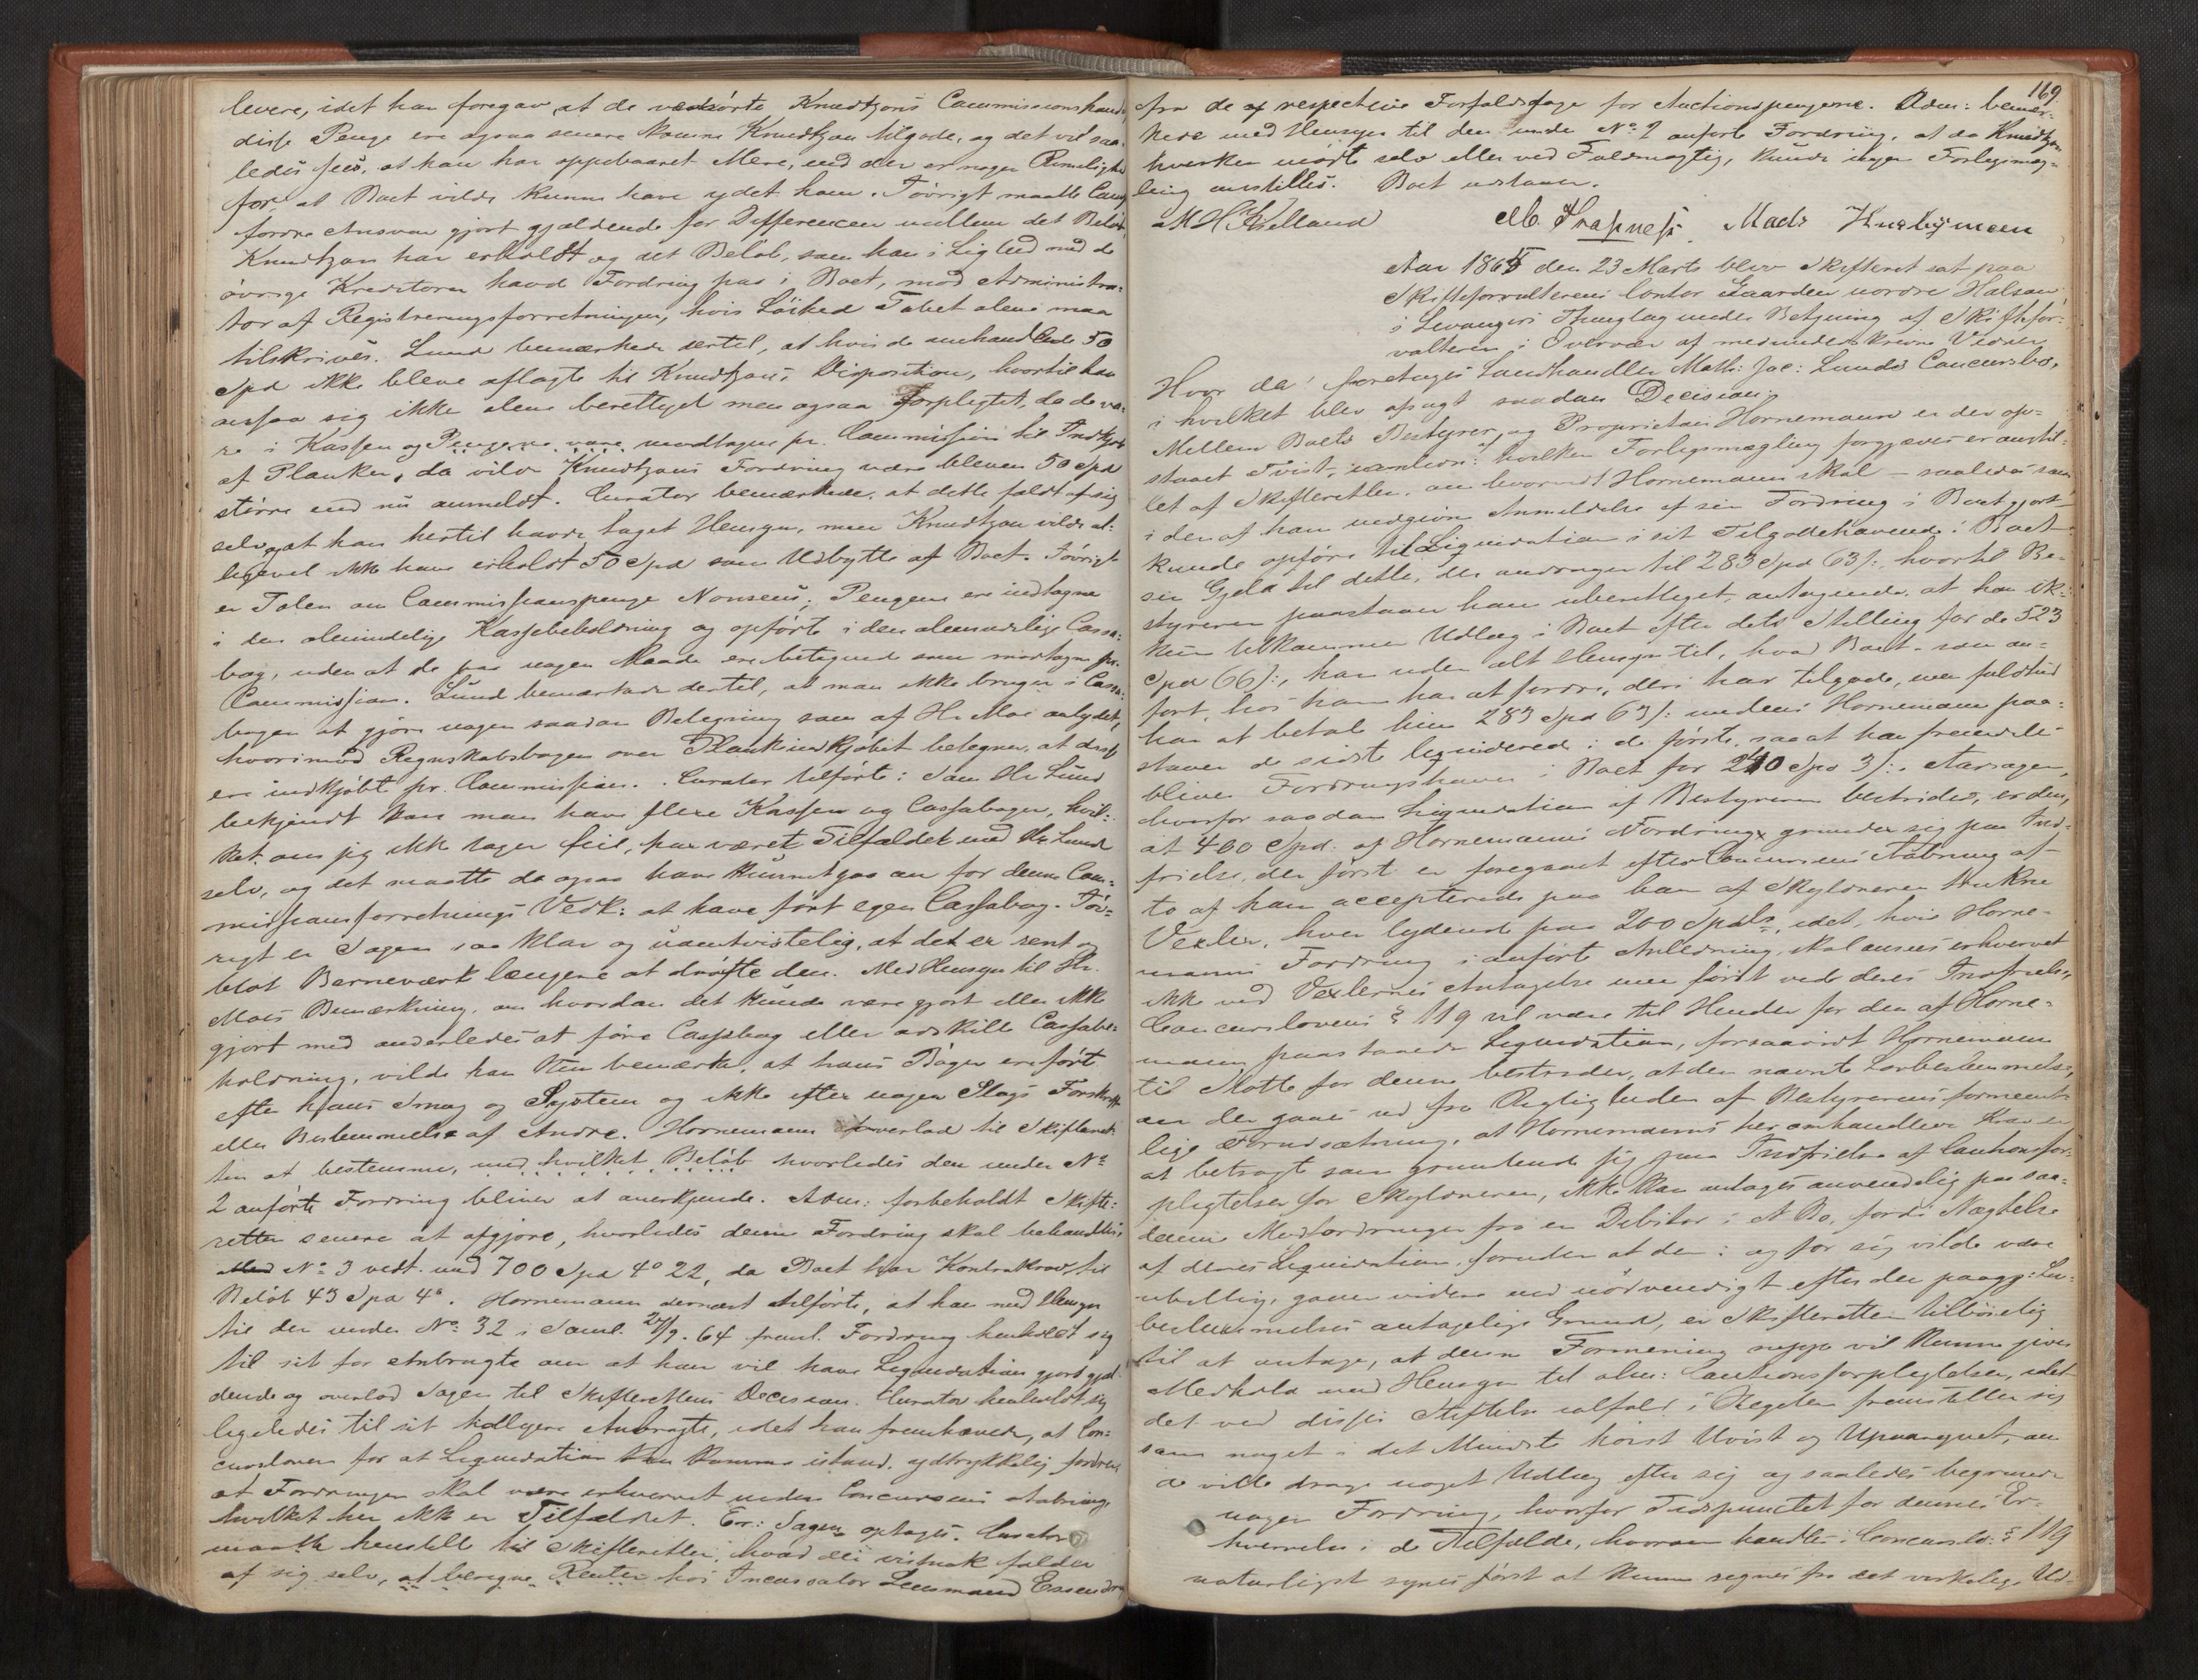 levere, idet han foregav at de vedrørte Knudtzons Commissionshand-
disse Penge ere ogsaa senere komne Knudtzon tilgode, og det vil saa-
ledes sees, at han har oppebaaret Mere, end der er nogen Rimelighed
for at Boet vilde kunne have ydet ham. Iøvrigt maatte
fordre Ansvar gjort gjældende for Differencen mellem det Beløb,
Knudtzon har erholdt og det Beløb, som han i Lighed med de
øvrige Kreditorer havde Fordring paa i Boet, mod Administra-
tor af Registreringsforretningen, hvis Løshed Tabet alene maa
tilskrives. Lund bemærkede dertil, at hvis de omhandlede 50
Spd ikke bleve aflagte til Knudtzons Disposition, hvortil han
ansaa sig ikke alene berettiget men ogsaa forpligtet, da de va-
re i Kassen og Pengene vare modtagne pr. Commission til Indkjøb
af Planker, da vilde Knudtzons Fordring være bleven 50 Spd
større end nu anmeldt. Curator bemærkede, at dette faldt af sig
selv at han hertil havde taget Hensyn, men Knudtzon vilde al-
ligevel ikke have erholdt 50 Spd som Udbytte af Boet. Iøvrigt
er Talen om Commissionspenge Nonsens; Pengene ere indtagne
i den almindelige Kassebeholdning og opførte i den almindelige Cassa-
bog, uden at de paa nogen Maade ere betegnede som modtagne pr.
Commission. Lund bemærkede dertil, at man ikke bruger i Cassa-
bogen at gjøre nogen saadan Betegning som af Hr Moe antydet,
hvorimod Regnskabsbogen over Plankeindkjøbet betegner, at disse
ere indkjøbt pr. Commission. Curator tilførte: Som Hr Lund
bekjendt kan man have flere Kasser og Cassabøger, hvil-
ket om jeg ikke tager feil, har været Tilfældet med Hr Lund
selv, og det maatte da ogsaa have kunnet gaa an for denne Com-
missionsforretnings Vedk: at have ført egen Cassabog. Iøv-
rigt er Sagen saa klar og uomtvistelig, at det er sent og
blot Barneværk længere at drøfte den. Med Hensyn til Hr.
Moes Bemærkning, om hvordan det kunde være gjort eller ikke
gjort med anderledes at føre Cassabog eller adskille Cassabe-
holdning, vilde han kun bemærke, at hans Bøger ere ført
efter hans Smag og System og ikke efter nogen Slags Forskrift
eller Bestemmelse af Andre. Hornemann overlod til Skifteret-
ten at bestemme, med hvilket Beløb hvorledes den under No
2 anførte Fordring bliver at anerkjende. Adm: forbeholdt Skifte-
retten senere at afgjøre, hvorledes denne Fordring skal behandles.
No 3 vedt. med 700 Spd 4o 22, da Boet har Kontrakrav til
Beløb 43 Spd 4o. Hornemann dernæst tilførte, at han med Hensyn
til den under No 32 i Saml. 27/9. 64 freml. Fordring henholdt sig
til sit før Anbragte om at han vil have Liqvidation gjort gjæl-
dende og overlod Sagen til Skifterettens Decision. Curator henholdt sig
ligeledes til sit tidligere Anbragte, idet han fremhævede, at Con-
curslovens for at Liqvidation kan komme istand, udtrykkelig fordrer
at Fordringen skal være erhvervet inden Concursens Aabning,
hvilket her ikke er Tilfældet. Er: Sagen optages. Curator
maatte henstille til Skifteretten, hvad der vistnok falder
af sig selv, at beregne Renter hos Incassator Lensmand
169
fra de respective Forfaldsdage for Auctionspengene. Adm: bemær-
kede med Hensyn til den under No 2 anførte Fordring, at da Knudtzon
hverken mødte selv eller ved Fuldmægtig, kunde ingen Forligsmæg-
ling anstilles. Boet udstaaer.
Kjelland Mads
Aar 1865 den 23 Marts blev Skifteret sat paa
Skifteforvalterens Contor Gaarden nordre Halsan
i Levangers Thinglag under Betjening af Skiftefor-
valteren i Overvær af medunderskrevne Vidner
Hvor da foretoges Landhandler Math: Jac: Lunds Concursbo,
i hvilket blev afsagt saadan Decision:
Mellem Boets Bestyrer og Proprietair Hornemann er der op-
staaet Tvist, hvilken Forligsmægling forgjæves er anstil-
let af Skifteretten, om hvorvidt Hornemann skal – saaledes som
i den af ham indgivne Anmeldelse af sin Fordring i Boet gjort –
kunde opføre til Liqvidation i sit Tilgodehavende i Boet
sin Gjæld til dette, der andrager til 283 Spd 63 /:, hvortil Be-
styreren paastaaer ham uberettiget, antagende, at han ik-
kun tilkommer Udlæg i Boet efter dets Stilling for de 523
Spd 66 /:, han uden alt Hensyn til, hvad Boet, som an-
ført, hos ham har at fordre, deri har tilgode, men fuldtud
har at betale hine 283 Spd 63 /: medens Hornemann paa-
staaer de sidste liqviderede i de første, saaat han fremdeles
bliver Fordringshaver i Boet for 240 Spd 3 /:. Aarsagen,
hvorfor saadan Liqvidation af Bestyreren bestrides, er den,
at 400 Spd. af Hornemanns Fordring grunder sig paa Ind-
frielse, der først er foregaaet efter Concursens Aabning af
to af ham accepterede paa ham af Skyldneren trukne
Vexler, hver lydende paa 200 Spdlr, idet, hvis Horne-
manns Fordring i anførte Anledning, skal ansees erhvervet
ikke ved Vexlernes Antagelse men først ved deres Indfrielse,
Concurslovens § 119 vil være til Hinder for den af Horne-
mann paastaaede Liqvidation, forsaavidt Hornemann
til Støtte for denne bestrider, at den nævnte Lovbestemmelse,
om der gaaes ud fra Rigtigheden af Bestyrerens forment-
lige Forudsætning, at Hornemanns her omhandlede Krav er
at betragte som grundende sig paa Indfrielse af Cautionsfor-
pligtelser for Skyldneren, ikke kan antages anvendelig paa saa-
danne Modfordringer fra en Debitor i et Bo, fordi Nægtelse
af deres Liqvidation, foruden at den i og for sig vilde være
ubillig, gaaer videre end nødvendigt efter den paagj: Lov-
bestemmelses antagelige Grund, er Skifteretten tilbøielig
til at antage, at denne Formening neppe vil kunne gives
Medhold med Hensyn til alm: Cautionsforpligtelser, idet
det ved disses Stiftelse ialfald i Regelen fremstiller sig
som noget i det Mindste høist Uvist og Upaaregnet, om
de ville drage noget Udlæg efter sig og saaledes begrunde
nogen Fordring, hvorfor Tidspunctet for dennes Er-
hvervelse i de Tilfælde, hvorom handles i Concursl: § 119
naturligst synes først at kunne regnes fra det virkelige Ud-